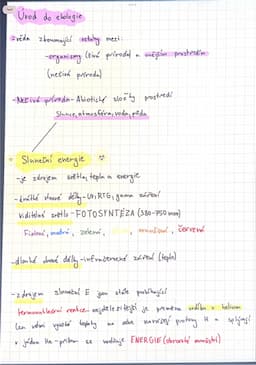 Úvod do ekologie
= věda zkoumající vztahy mezi:
- organismy (živá příroda) a vnějším prostředím
(neživá příroda)
- Neživá příroda - Abiotické složky prostředí
Slunce, atmosféra, voda, půda
Sluneční energie
- je zdrojem světla, tepla a energie
- krátké vlnové délky - UV, RTG, gamma záření
Viditelné světlo - FOTOSYNTÉZA (380-750 nm)
Fialová, modrá, zelená, oranžová, červená
- dlouhé vlnové délky - infračervené záření (teplo)
- zdrojem sluneční E jsou stále probíhající
termonukleární reakce - nejdůležitější je přeměna vodíku v helium
(za velmi vysoké teploty na sebe narážejí protony H a splývají
v jádra He - přitom se uvolňuje ENERGIE (obrovské množství)